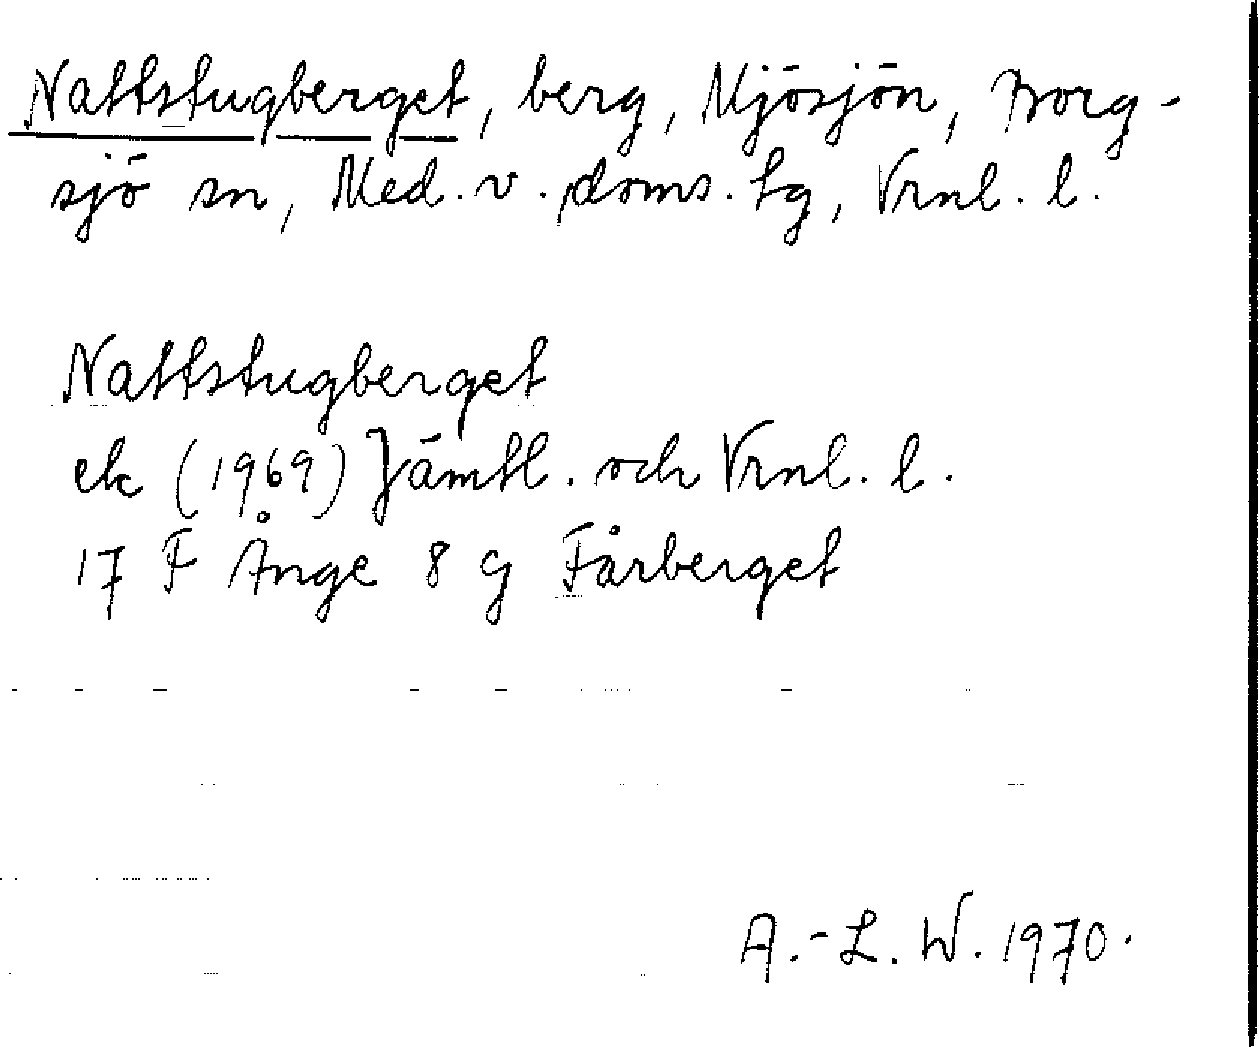 Nattstugberget, berg, Mjösjön, Borg-
sjö sn, Med. v. doms. tg, Vrnl. l.
Nattstugberget
ek (1969) Jämtl. och Vrnl. l.
17 F Ånge 8 g Fårberget
A.-L. W. 1970.